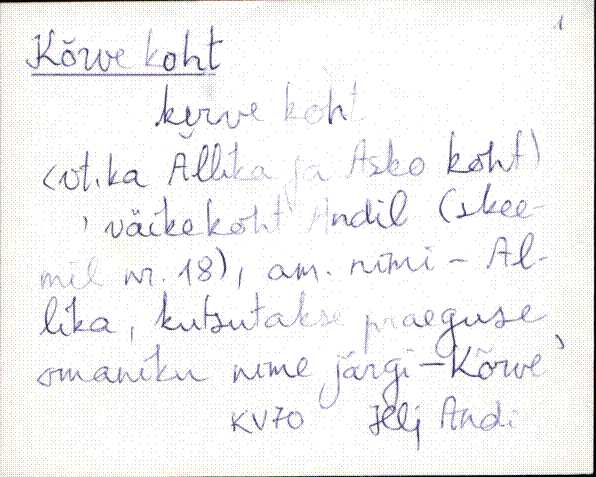 1
Kõrve koht
kerve koht
(vt. ka Allika ja Asko koht)
'väike koht Andil (skee-
mil nr. 18), am. nimi - Al-
lika, kutsutakse praeguse
omaniku nime järgi - Kõrve'
KV70 Jelj Andi